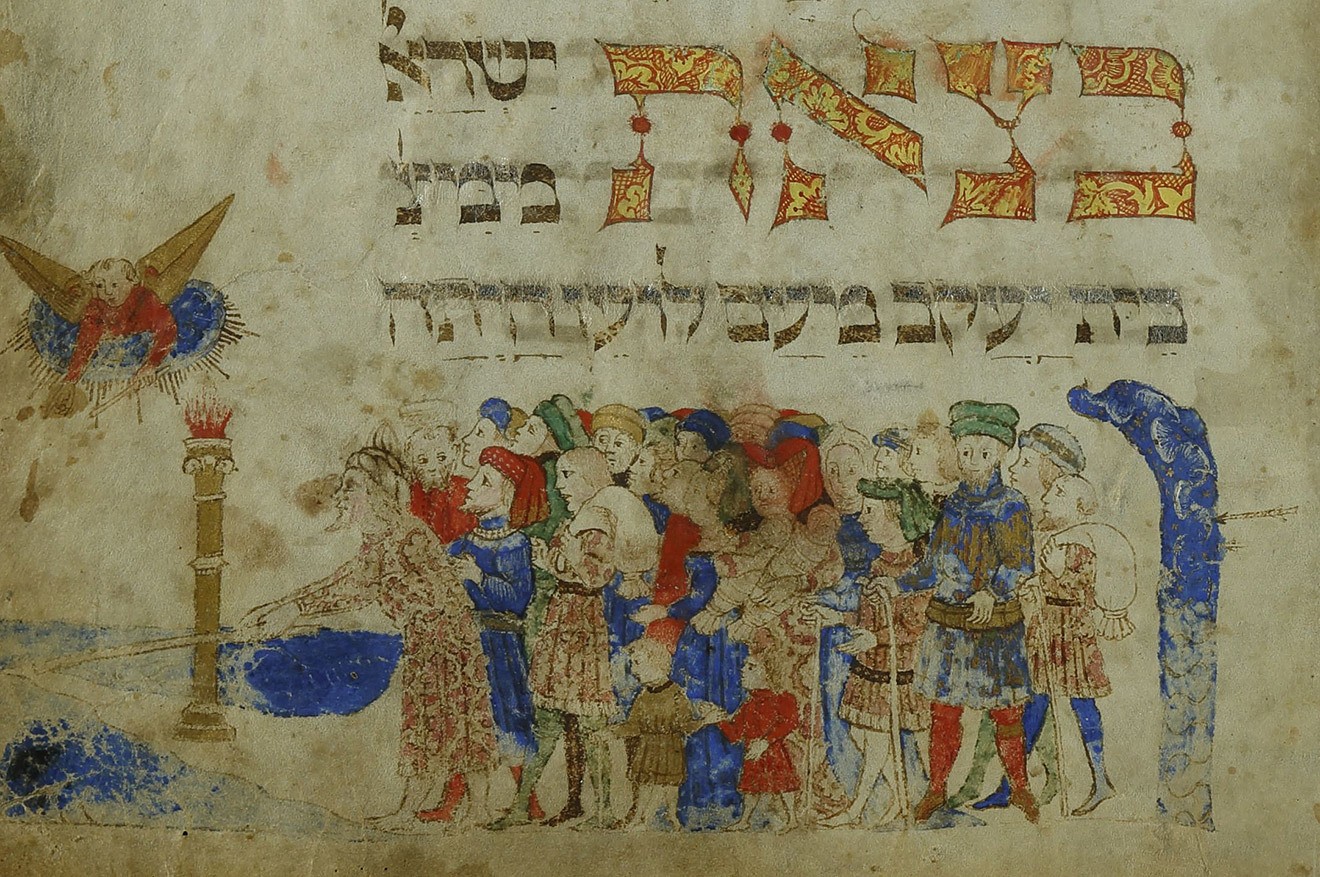 בצאת ישראל
ממצ'
בית יעקב מעם לועז היתה